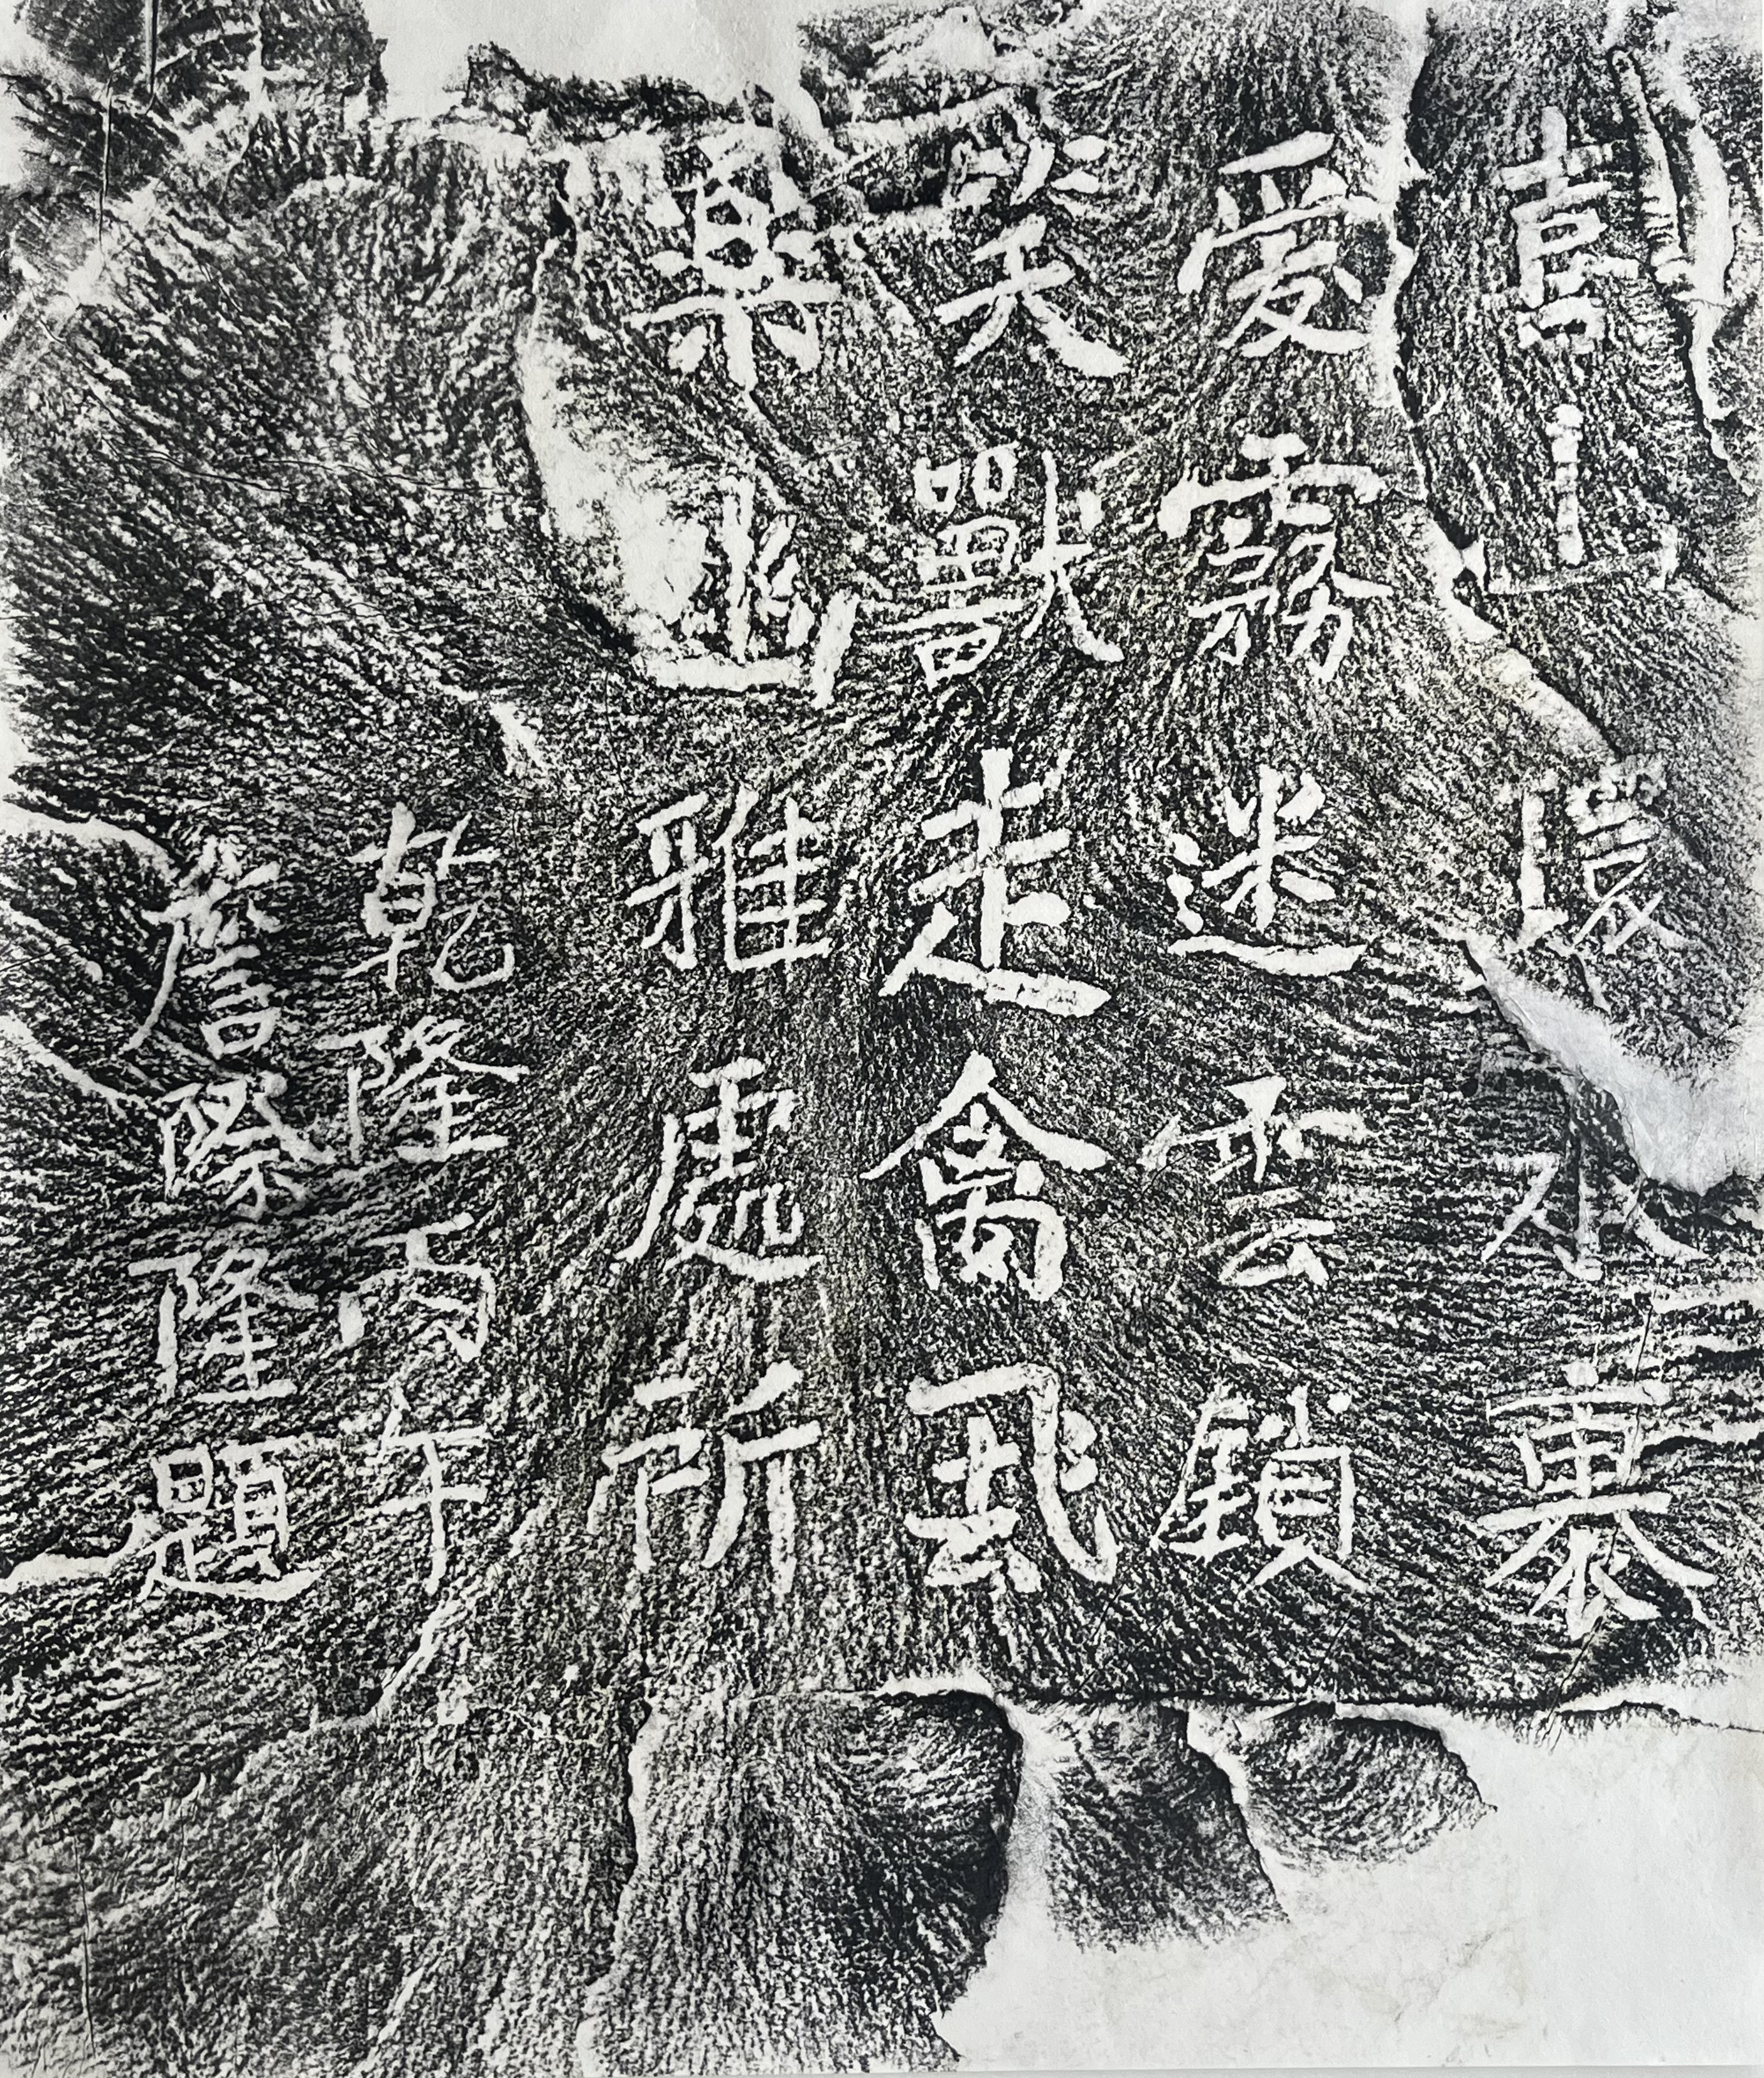 喜山環水裹
愛霧迷雲鎖
笑獸走禽飛
樂幽雅處所
乾隆丙午
詹際隆題